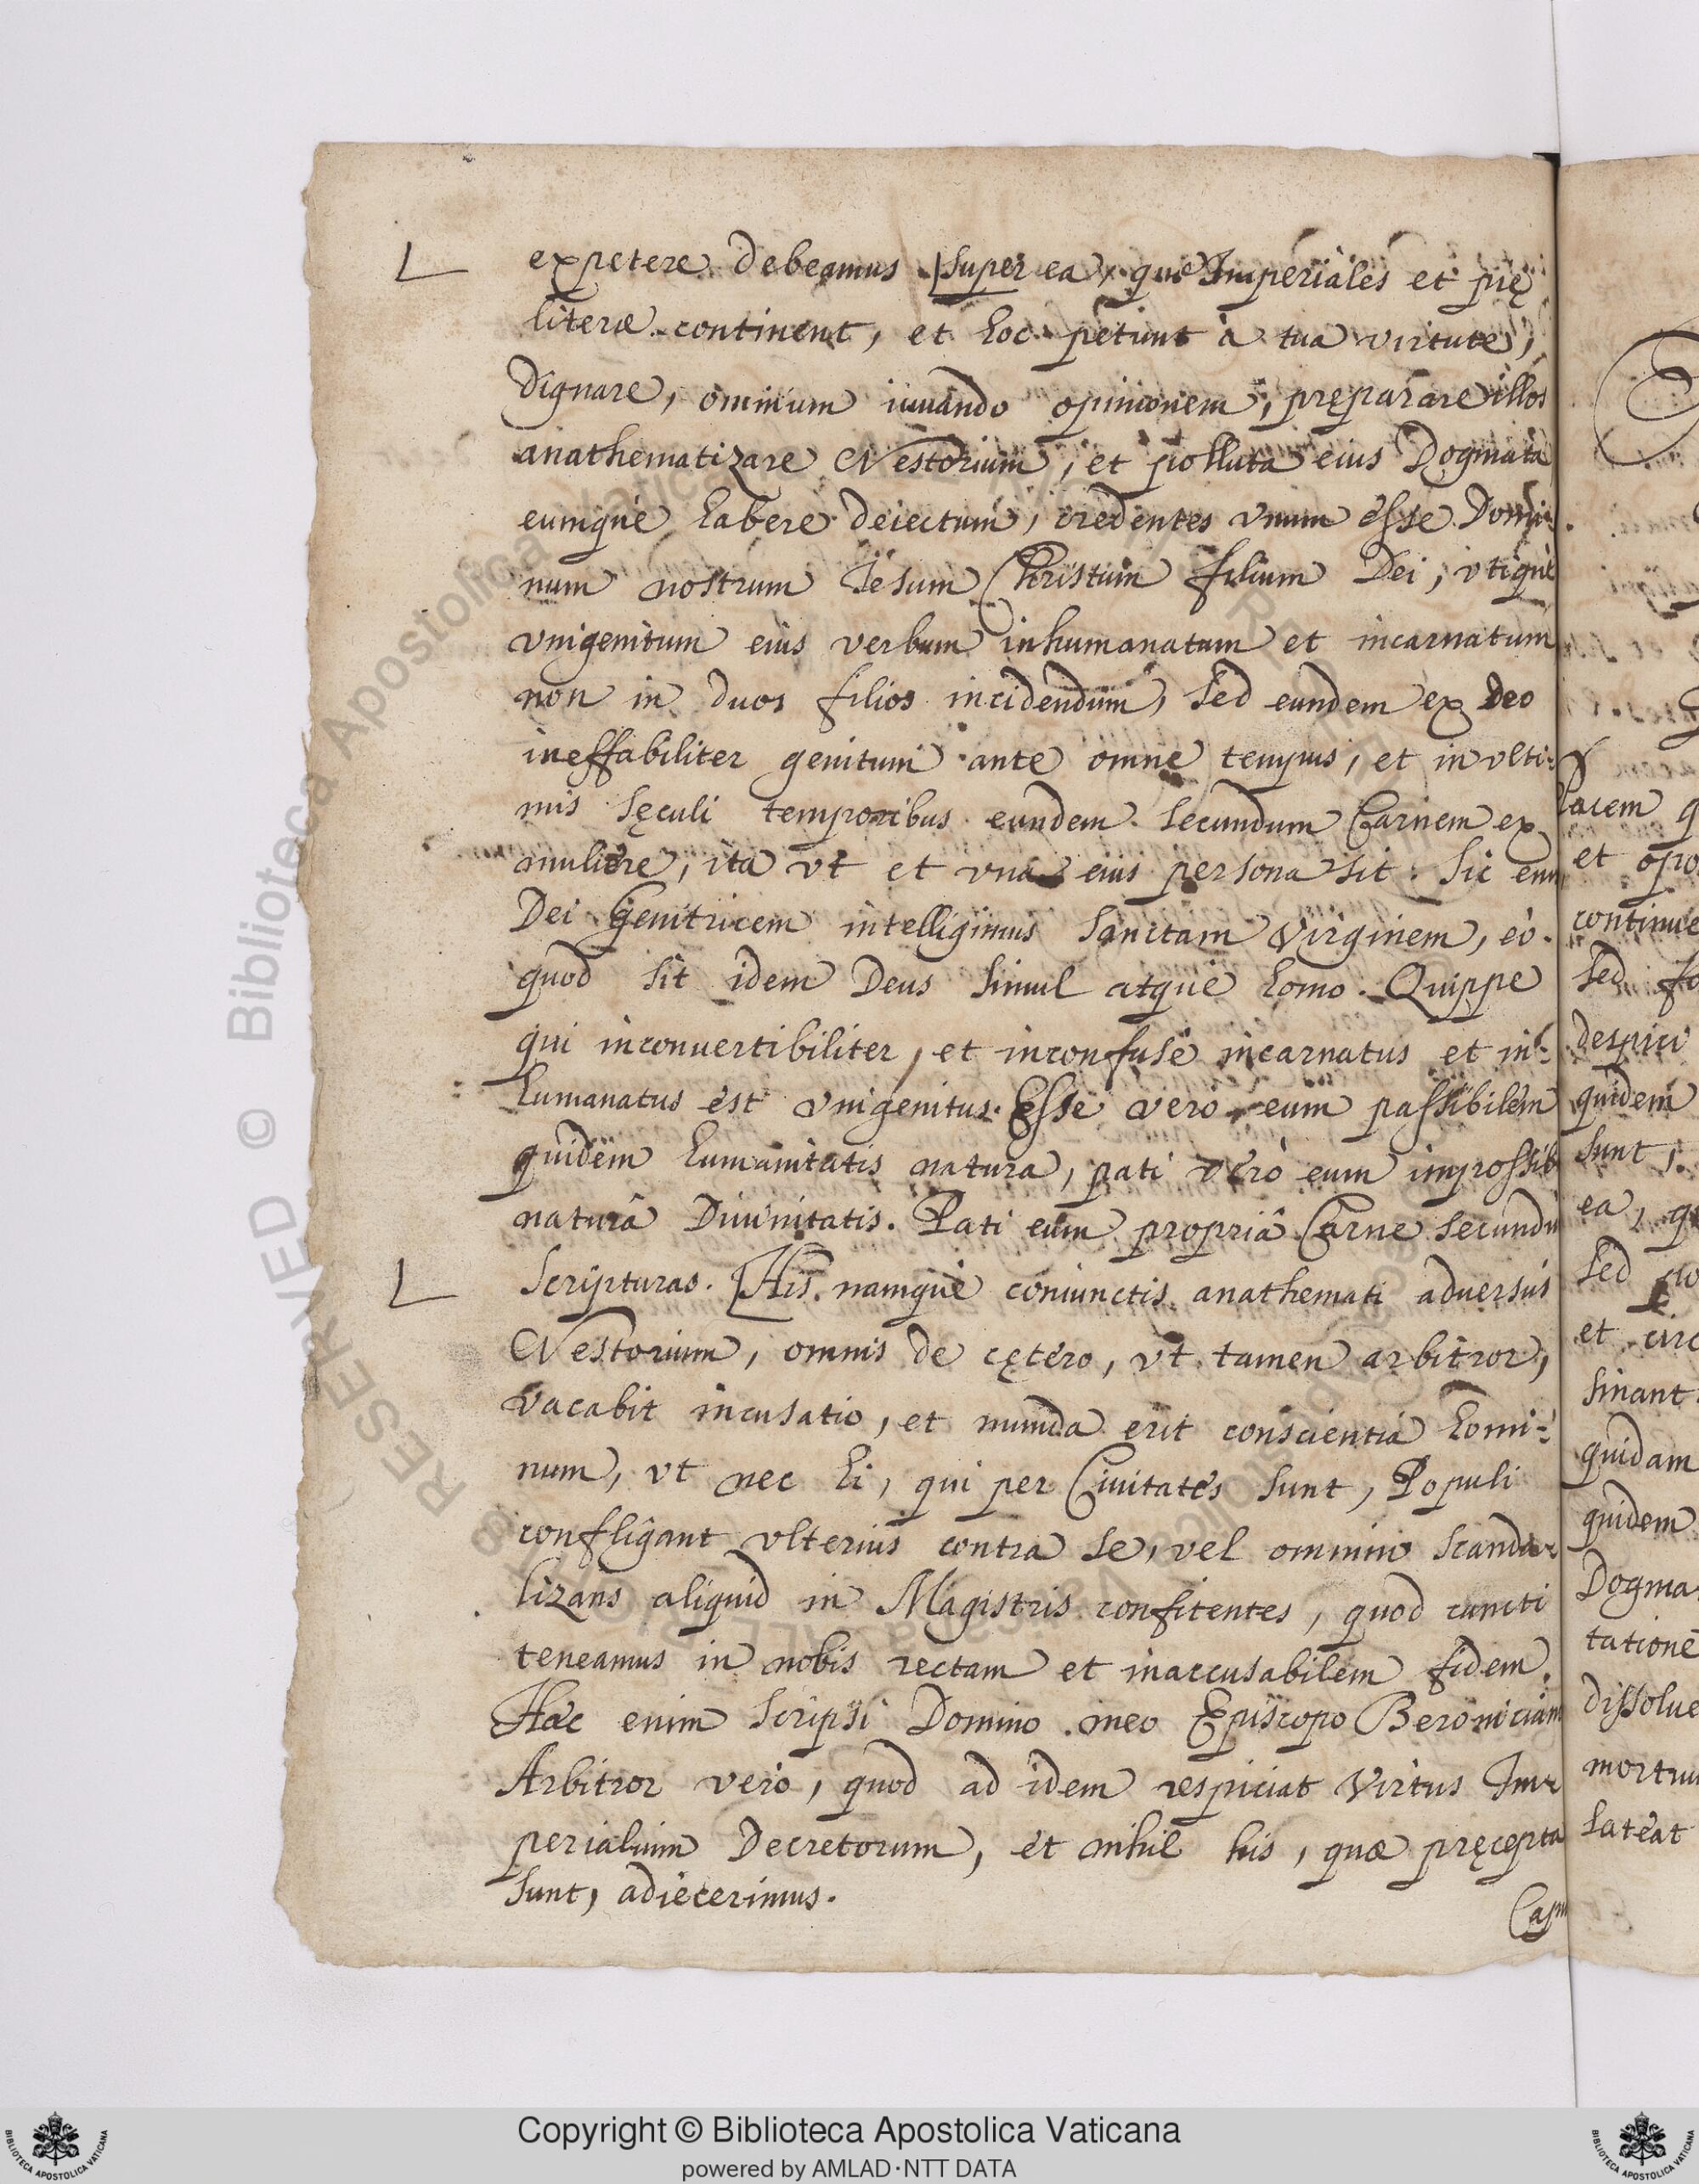 expetere debeamus. super ea, quæ Imperiales et pię
literæ continent, et hoc petunt à tua virtute,
dignare, omnium iuuando opinionem, pręparare illos
anathematizare Nestorium, et polluta eius Dogmata
eumque habere deiectum, credentes vnum esse Domi-
num nostrum Iesum Christum filium Dei, vtique
vnigenitum eius verbum inhumanatum et incarnatum
non in duos filios incidendum, sed eundem ex Deo
ineffabiliter genitum ante omne tempus, et in vlti-
mis sęculi temporibus eundem secundum Carnem ex
muliere, ita vt et vna eius persona sit. Sic enim
Dei Genitricem intelligimus Sanctam Virginem, eò
quod sit idem Deus simul atque homo. Quippe
qui inconuertibiliter, et inconfuse incarnatus et in-
humanatus est vnigenitus. Esse vero eum passibilem
quidem humanitatis natura, pati verò eum impossib
naturâ Diuinitatis. Pati eum propriâ Carne secundũ
Scripturas. His namque coniunctis anathemati aduersus
Nestorium, omnis de cętero, vt tamen arbitror,
vacabit incusatio, et munda erit conscientia homi-
num, vt nec hi, qui per Ciuitates sunt, Populi
confligant vlterius contra se, vel omnino scanda-
lizans aliquid in Magistris confitentes, quod cuncti
teneamus in nobis rectam et inaccusabilem fidem.
Hæc enim scripsi Domino meo Episcopo Beroniciam
Arbitror vero, quod ad idem respiciat Virtus Im-
perialium Decretorum, et nihil his, quæ pręcepta
sunt, adiecerimus.
Capu
pacem q
et opo
continue
sed fo
despici
quidem
sunt,
ea, qu
sed no
et circ
sinant
quidam
quidem
Dogma
tatione
dissolue
mortuu
lateat
RESERVED © Biblioteca Apostolica Vaticana
Copyright © Biblioteca Apostolica Vaticana
powered by AMLAD·NTT DATA
BIBLIOTECA APOSTOLICA VATICANA
BIBLIOTECA APOSTOLICA VATICANA